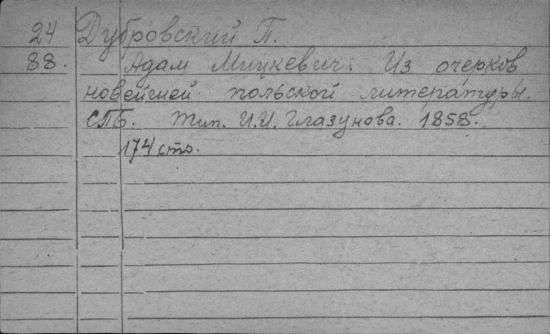 24 Дубровский П.
88. Адам Мицкевич. Из очерков
новейшей польской литературы.
СПБ. Тип. И.И. Глазунова. 1858.
174 стр.